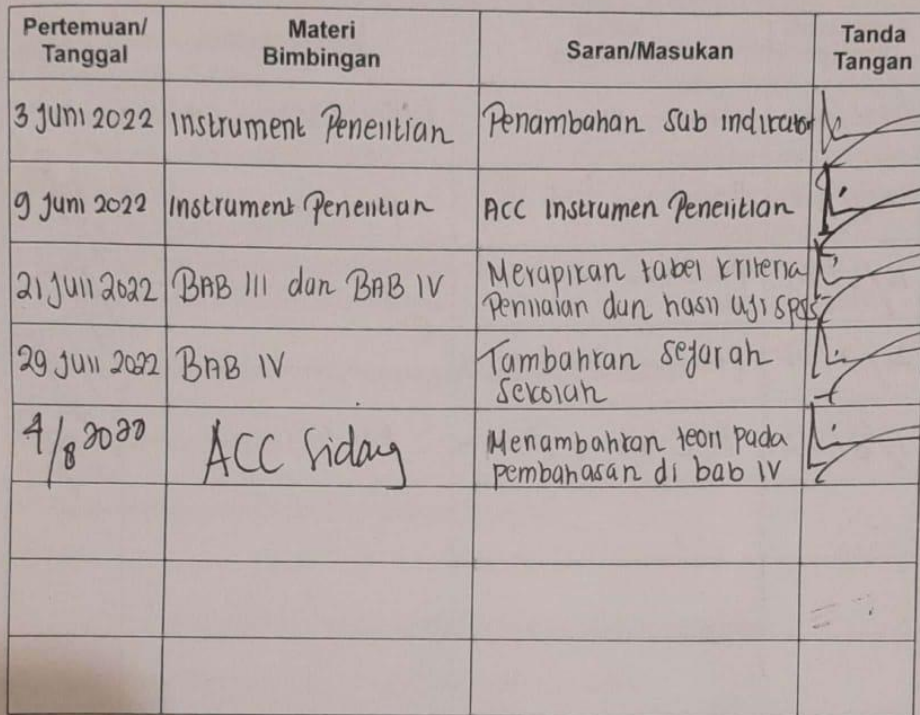 Pertemuan/ Tanggal Materi Bimbingan Saran/Masukan Tanda Tangan
3 Juni 2022 Instrument Penelitian Penambahan Sub indikator
9 Juni 2022 Instrument Penelitian ACC Instrumen Penelitian
21 Juli 2022 BAB III dan BAB IV Merapikan tabel kriteria
Penilaian dan hasil uji spss
29 Juli 2022 BAB IV Tambahkan Sejarah
Sekolah
4/8 2022 ACC Sidang Menambahkan teori pada
pembahasan di bab IV